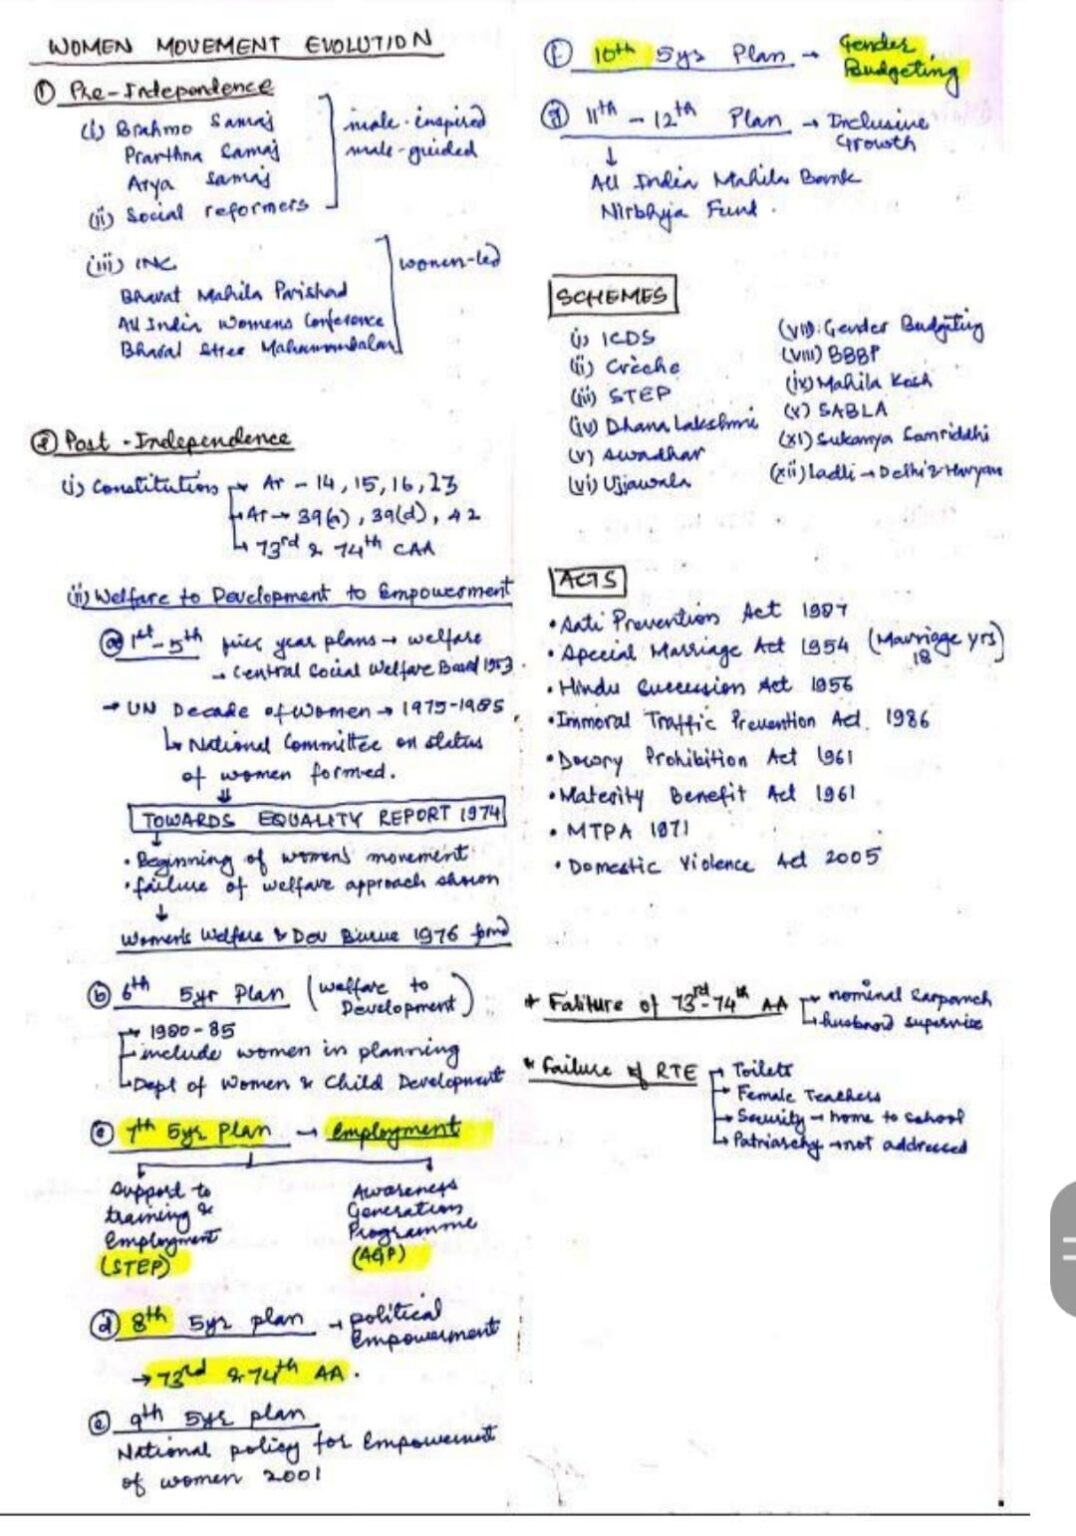 WOMEN MOVEMENT EVOLUTION
① Pre-Independence
(i) Brahmo Samaj
Prarthna Samaj
Arya Samaj
(ii) Social reformers
male-inspired
male-guided
(iii) INC
Bharat Mahila Parishad
All India Womens Conference
Bharat Stree Mahamandalan
women-led
② Post-Independence
(i) Constitution → Ar - 14, 15, 16, 23
→ Ar → 39(a), 39(d), 42
→ 73rd & 74th CAA
(ii) Welfare to Development to Empowerment
ⓐ 1st-5th five year plans → welfare
→ Central Social Welfare Board 1953.
→ UN Decade of Women → 1975-1985
↳ National Committee on status
of women formed.
⇓
TOWARDS EQUALITY REPORT 1974
↓
• Beginning of womens movement
• failure of welfare approach shown
↓
Women's Welfare & Dev 1976
ⓑ 6th 5yr Plan (welfare to
Development)
→ 1980-85
→ include women in planning
↳ Dept of Women & Child Development
ⓒ 7th 5yr Plan → Employment
Support to
training &
Employment
(STEP)
Awareness
Generation
Programme
(AGP)
ⓓ 8th 5yr plan → political
Empowerment
→ 73rd & 74th AA.
ⓔ 9th 5yr plan
National policy for Empowerment
of women 2001
ⓕ 10th 5yr Plan → Gender
Budgeting
ⓖ 11th - 12th Plan → Inclusive
Growth
↓
All India Mahila Bank
Nirbhya Fund.
SCHEMES
(i) ICDS
(ii) Crèche
(iii) STEP
(iv) Dhana Lakshmi
(v) Awadhar
(vi) Ujjawala
(vii) Gender Budgeting
(viii) BBBP
(ix) Mahila Kosh
(x) SABLA
(xi) Sukanya Samriddhi
(xii) Ladli → Delhi & Haryan
ACTS
• Sati Prevention Act 1987
• Special Marriage Act 1954 (Marriage yrs)
18
• Hindu Succession Act 1956
• Immoral Traffic Prevention Act. 1986
• Dowry Prohibition Act 1961
• Maternity Benefit Act 1961
• MTPA 1971
• Domestic Violence Act 2005
* Failiture of 73rd-74th AA → nominal Sarpanch
↳ husband supervise
* Failure of RTE → Toilets
→ Female Teachers
→ Security → home to school
↳ Patriarchy → not addressed